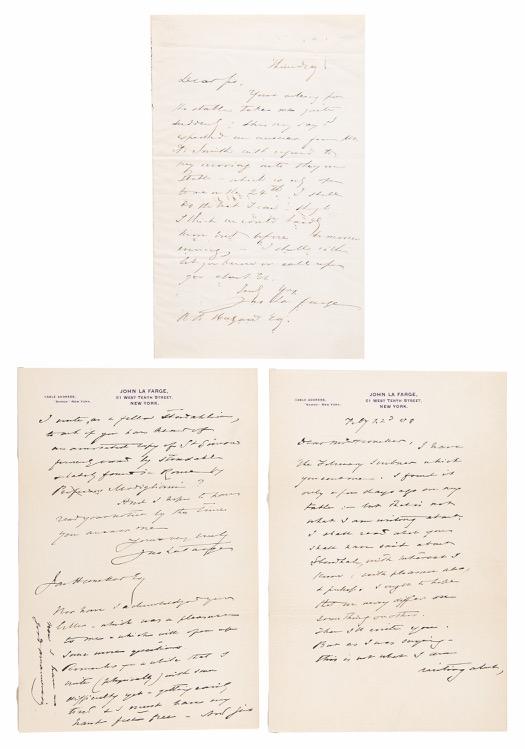 Thursday
Dear Sir,
Your asking for
the stable takes me quite
suddenly: this very day I
expected an answer from Mr
Smith with regard to
my moving into the
stable - which is only open
to me on the 24th. I shall
do the best I can: though
I think we could hardly
move out before to-morrow
evening. I shall either
let you know or call upon
you about it.
Jno La Farge
R. H. Esq.
CABLE ADDRESS,
NEW YORK.
JOHN LA FARGE,
51 WEST TENTH STREET,
NEW YORK.
I write, as a fellow Stendhalian,
to ask if you have heard of
an annotated copy of St Simon
formerly owned by Stendhal
& lately found in Rome by
Professor Modigliani?
And I hope to have
read your notice by the time
you answer me
Yours very truly
Jno La Farge
Jas Huneker Esq
Nor have I acknowledged your
letter - which was a pleasure
to me - & which will open up
some more questions
Remarks for a while that I
write (physically) with some
difficulty yet - getting easily
tired & I must have my
hand free - And just
now I have no
CABLE ADDRESS,
NEW YORK.
JOHN LA FARGE,
51 WEST TENTH STREET,
NEW YORK.
22d 08
Dear Mr Huneker, I have
the February Scribner which
you sent me. I found it
only a few days ago on my
table - but that is not
what I am writing about.
I shall read what you
shall have said about
Stendhal, with interest I
know; with pleasure also,
I ought to
on
something or other.
Then I'll write you.
But as I was saying -
this is not what I am
writing about,